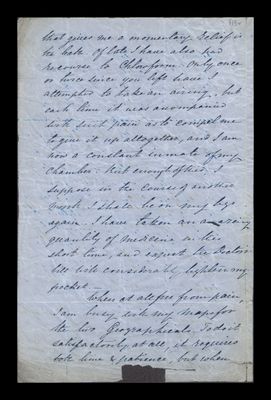 that gives me a momentary relief is
the bath of late I have also had
recourse to Chloroform. Only once
or twice since you left have I
attempted to take an airing, but
each time it was accompanied
with such pain as to compel me
to give it up altogether, and I am
now a constant inmate of my
Chamber. But enough of this, I
suppose in the course of another
month I shall be on my legs
again. I have taken an amazing
quantity of medicine in this
short time, and expect the Doctors
bill will considerably lighten my
pocket.
When at all free from pain,
I am busy with my maps for
the two Geographicals. To do it
satisfactorily at all, it requires
both time & patience, but when